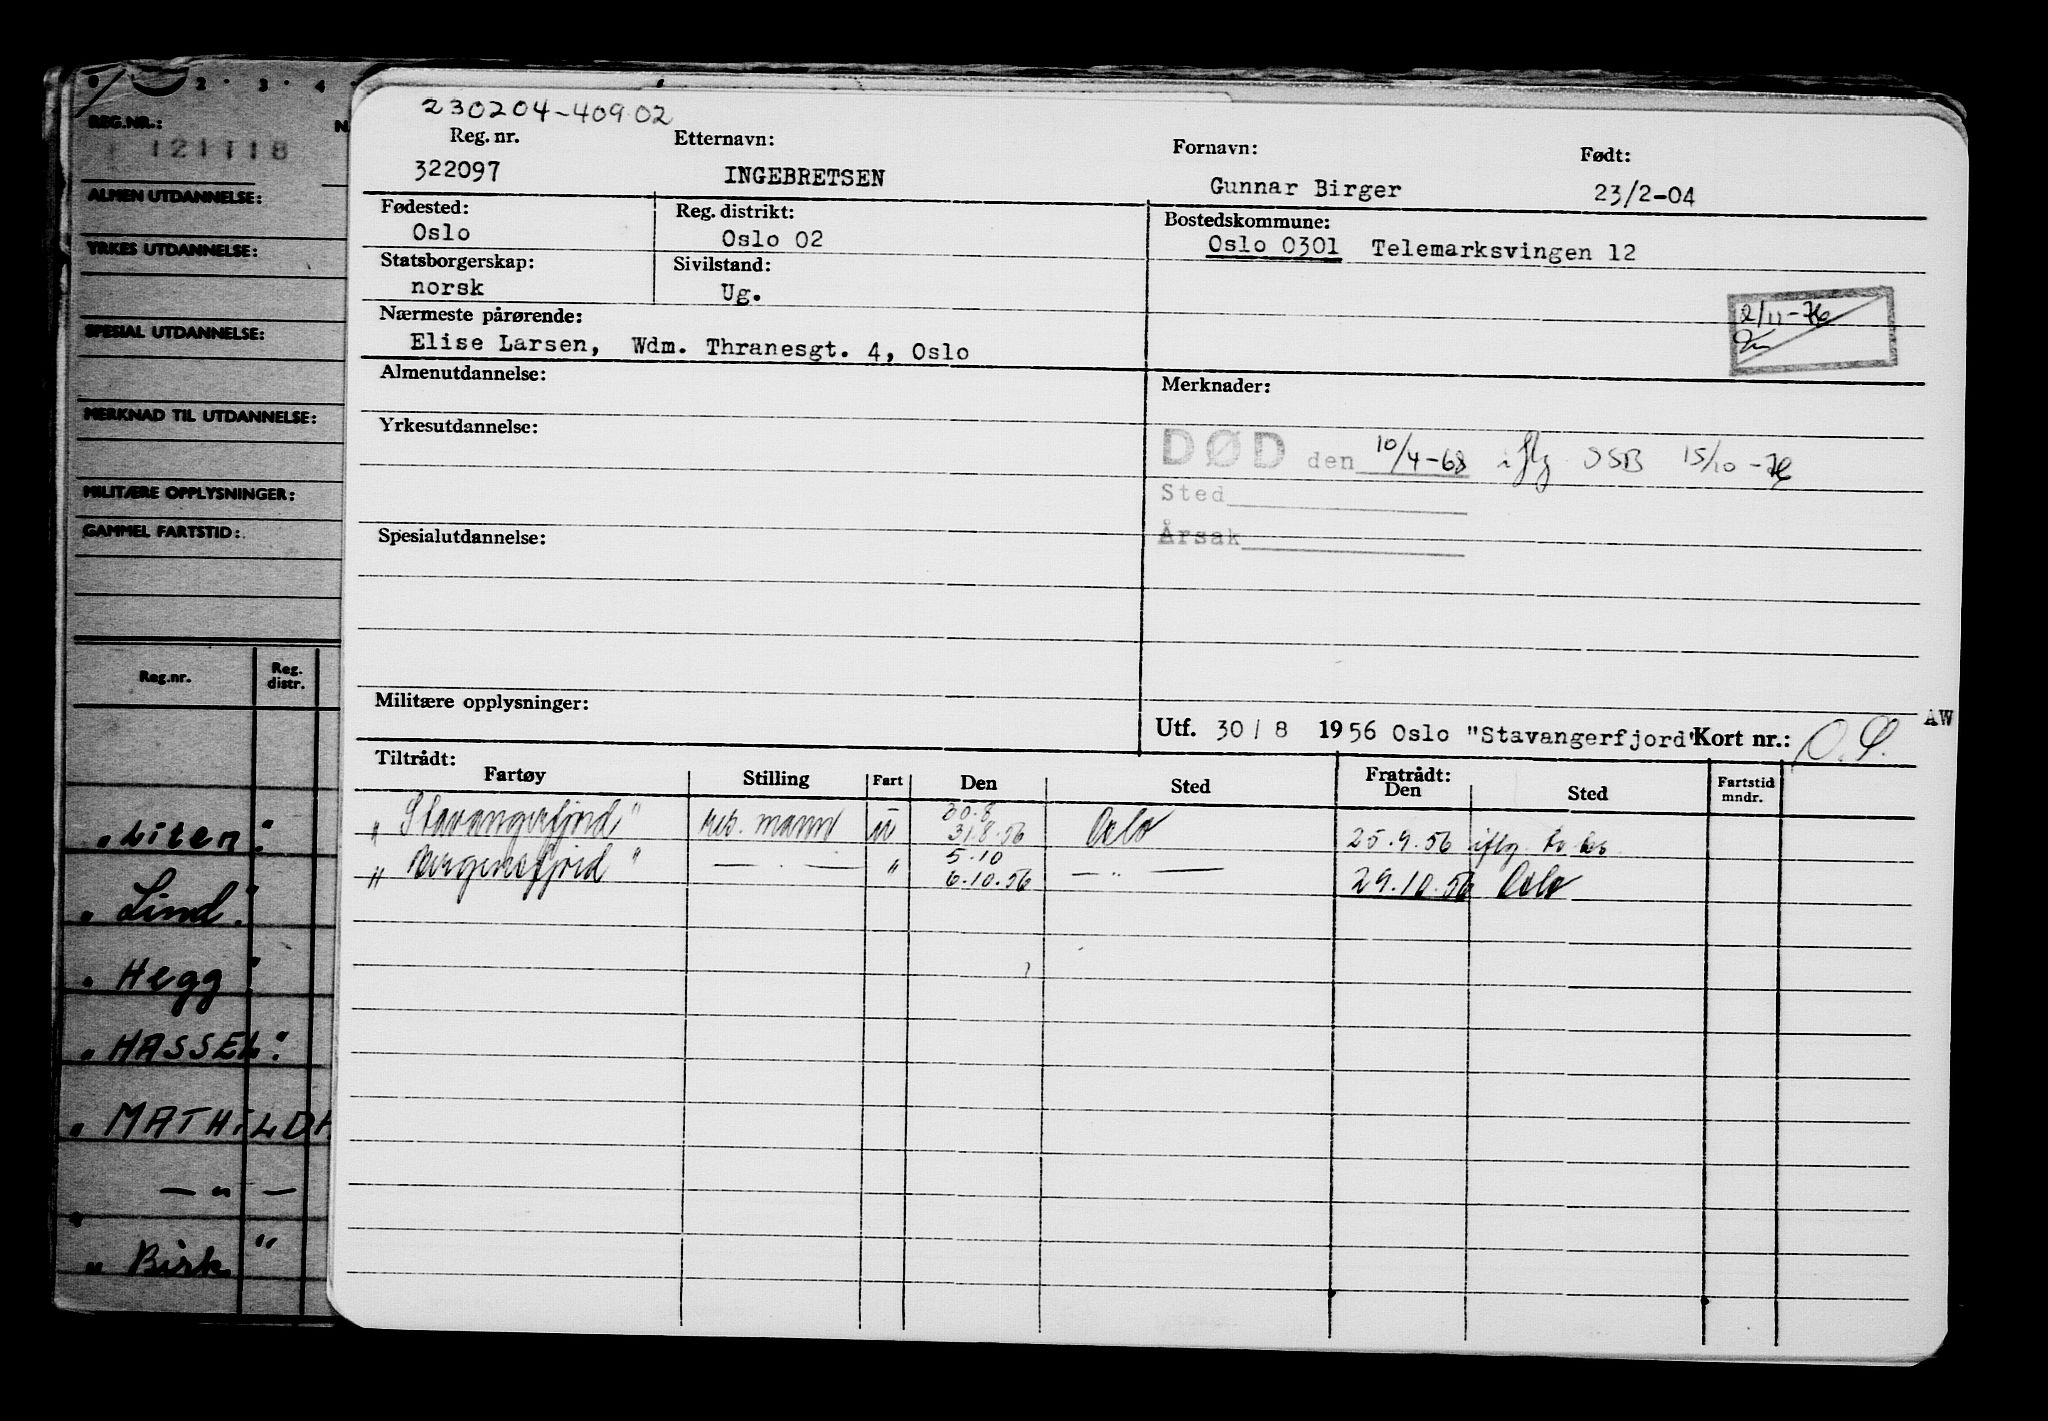 2 · 3 · 4
REG.NR.:
121118
ALMEN UTDANNELSE:
YRKES UTDANNELSE:
SPESIAL UTDANNELSE:
MERKNAD TIL UTDANNELSE:
MILITÆRE OPPLYSNINGER:
GAMMEL FARTSTID:
Reg.nr. Reg. distr.
"Liten"
"Lind"
"Hegg"
"HASSEL"
"MATHILD
— " —
"Birk"
230204-409.02
Reg. nr. Etternavn: Fornavn: Født:
322097 INGEBRETSEN Gunnar Birger 23/2-04
Fødested: Reg. distrikt: Bostedskommune:
Oslo Oslo 02 Oslo 0301 Telemarksvingen 12
Statsborgerskap: Sivilstand:
norsk Ug.
2/11-76
Nærmeste pårørende:
Elise Larsen, Wdm. Thranesgt. 4, Oslo
Almenutdannelse: Merknader:
Yrkesutdannelse:
DØD den 10/4-68 iflg DSB 15/10-76
Sted
Årsak
Spesialutdannelse:
Militære opplysninger:
Utf. 30/8 1956 Oslo "Stavangerfjord" Kort nr.: AW
Tiltrådt: Fratrådt:
Fartøy Stilling Fart Den Sted Den Sted Fartstid mndr.
"Stavangerfjord" res. mann u 30.8 31.8.56 Oslo 25.9.56 iflg.
"Bergensfjord" — " — " 5.10 6.10.56 — " — 29.10.56 Oslo